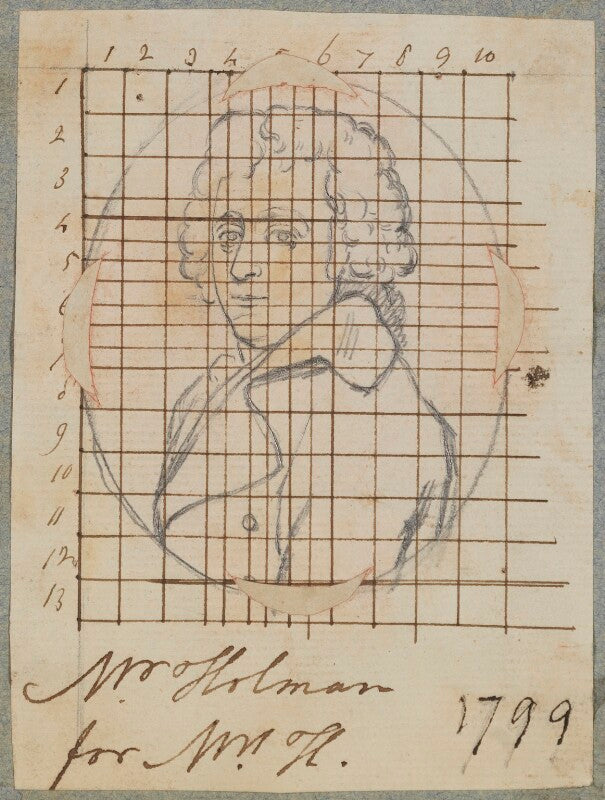 1 2 3 4 5 6 7 8 9 10
1
2
3
4
5
6
7
8
9
10
11
12
13
Mr Holman
for Mrs H.
1799